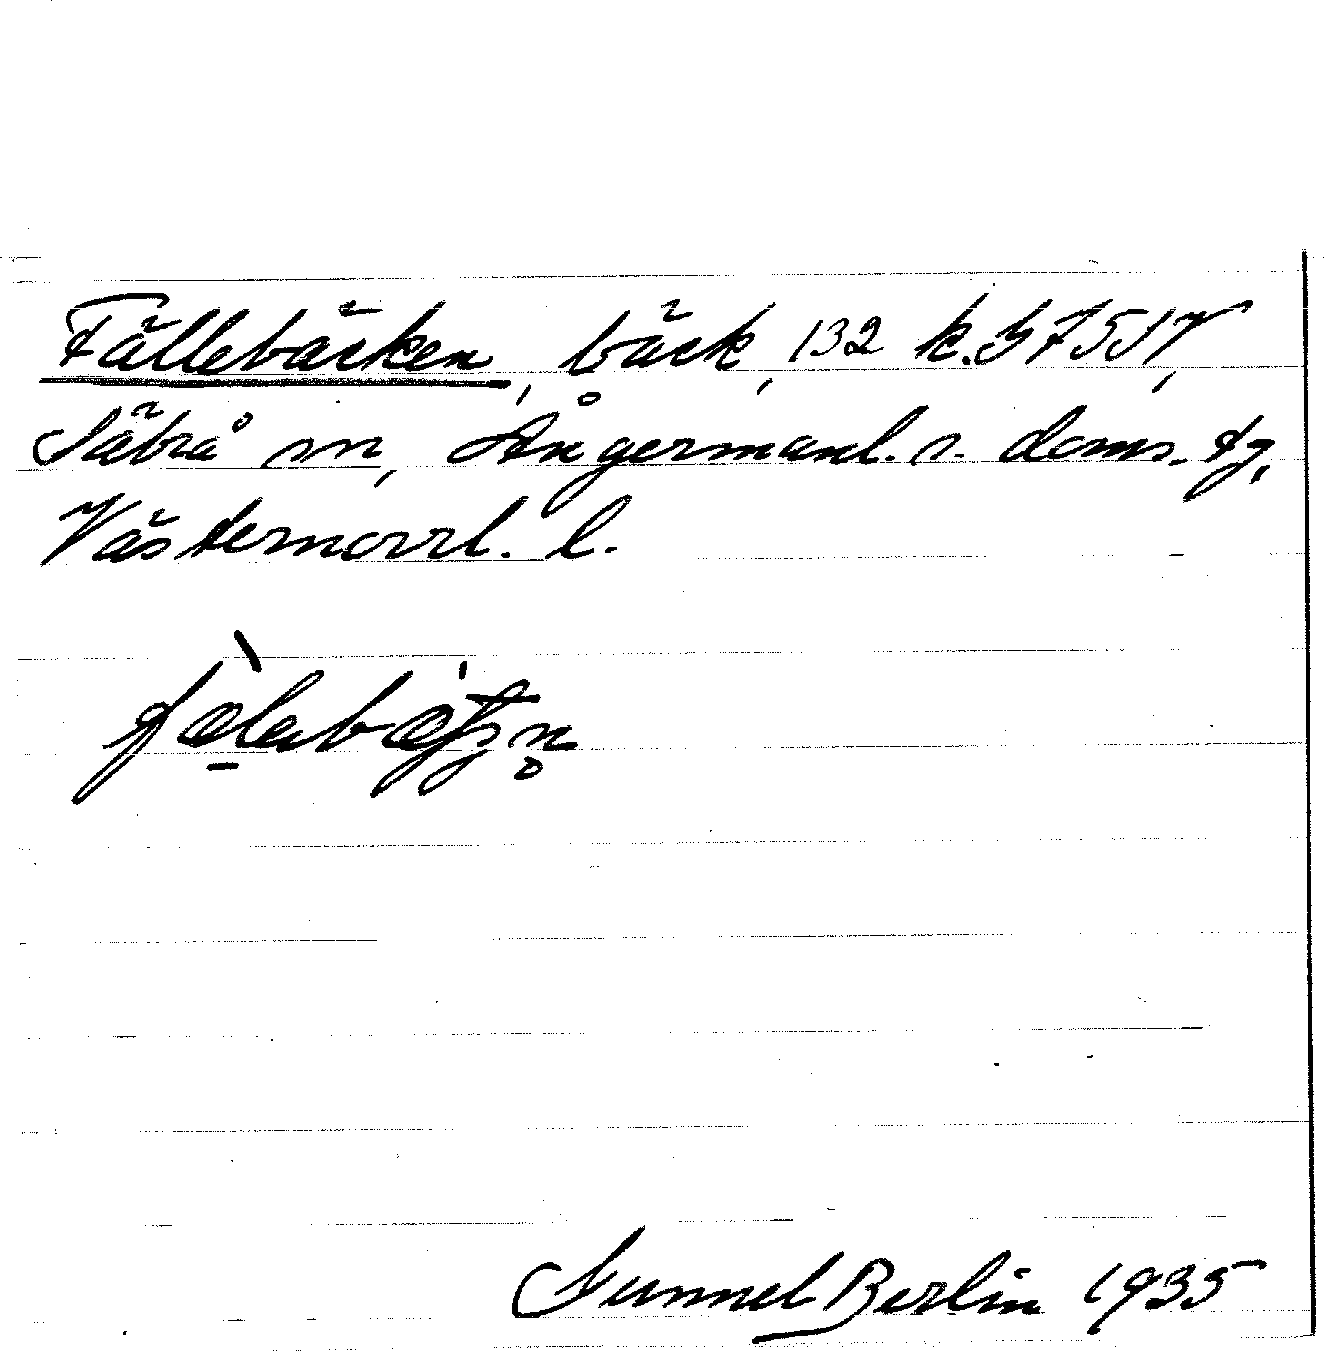 Fällebäcken, bäck, 132 k. 57517,
Säbrå sn, Ångermanl. s. doms. tg,
Västernorrl. l.
Gunnel Berlin 1935